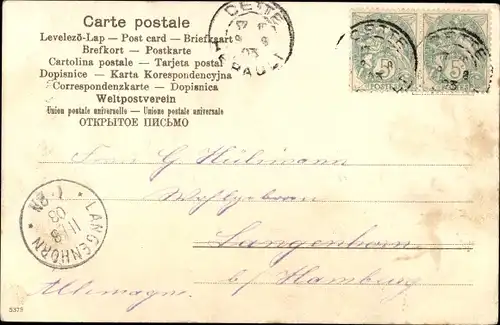 Carte postale
Levelező-Lap — Post card — Briefkaart
Brefkort — Postkarte
Cartolina postale — Tarjeta postal
Dopisnice — Karta Korespondencyjna
Correspondenzkarte — Dopisnica
Weltpostverein
Union postale universelle — Unione postale universale
ОТКРЫТОЕ ПИСЬМО
CETTE
HERAULT
CETTE
5 5
Herrn G. Hülsmann
Wohlgeboren
Langenhorn
b/ Hamburg
Allemagne
LANGENHORN
03
5375